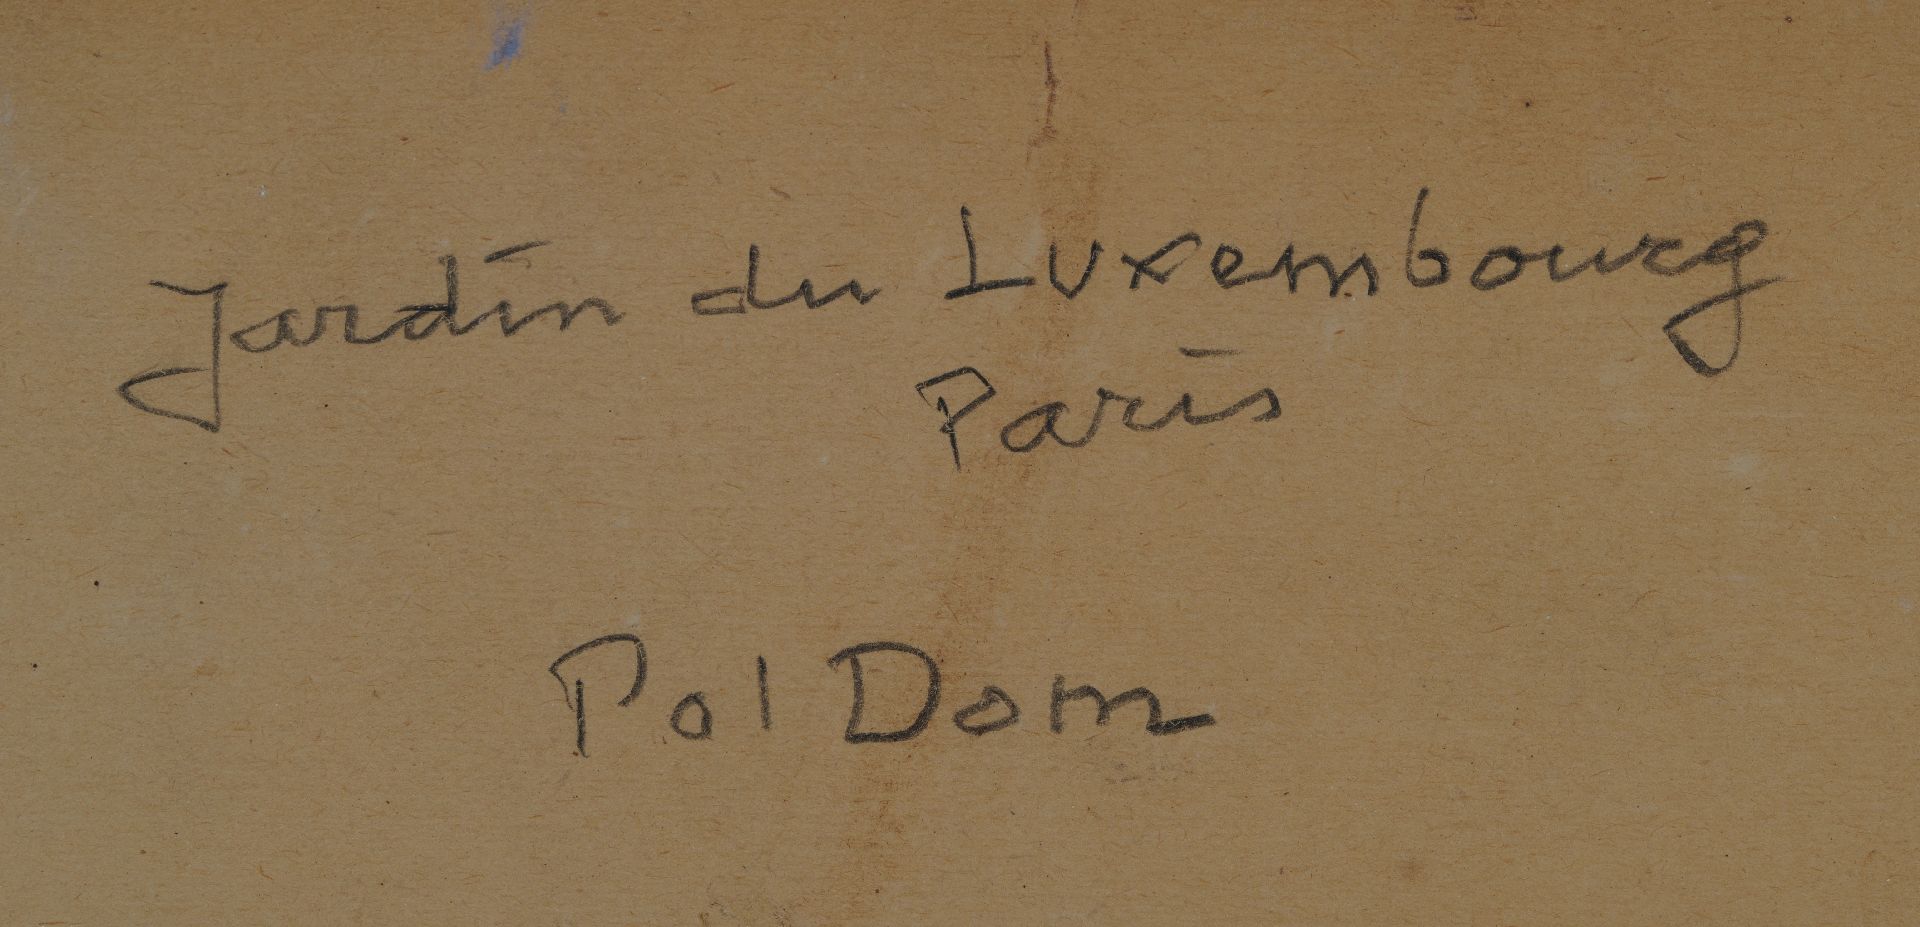 Jardin du Luxembourg
Paris
Pol Dom